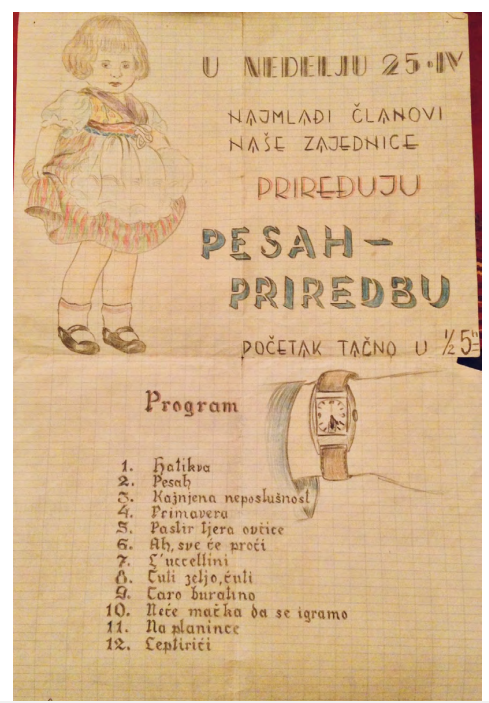 U NEDELJU 25·IV
NAJMLAĐI ČLANOVI
NAŠE ZAJEDNICE
PRIREĐUJU
PESAH-
PRIREDBU
POČETAK TAČNO U ½ 5
Program
1. Hatikva
2. Pesah
3. Kajnjena neposlušnost
4. Primavera
5. Pastir tjera ovčice
6. Ah, sve će proći
7. L'uccellini
8. Čuli zeljo, čuli
9. Caro buratino
10. Neće mačka da se igramo
11. Na planince
12. Leptirići